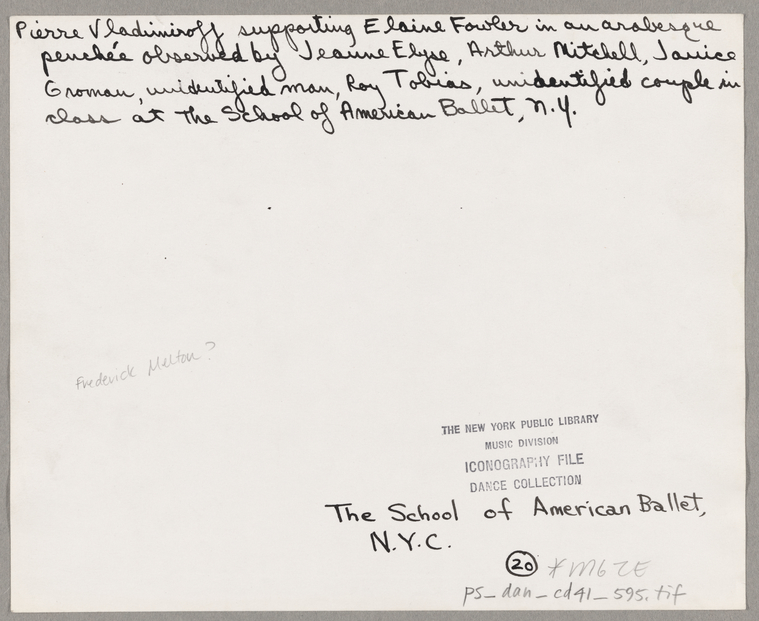 Pierre Vladimiroff supporting Elaine Fowler in an arabesque
penchée observed by Jeanne Elyse, Arthur Mitchell, Janice
Groman, unidentified man, Roy Tobias, unidentified couple in
class at The School of American Ballet, N.Y.
Frederick Melton?
THE NEW YORK PUBLIC LIBRARY
MUSIC DIVISION
ICONOGRAPHY FILE
DANCE COLLECTION
The School of American Ballet,
N.Y.C.
20 *MGZE
ps_dan_cd41_595.tif